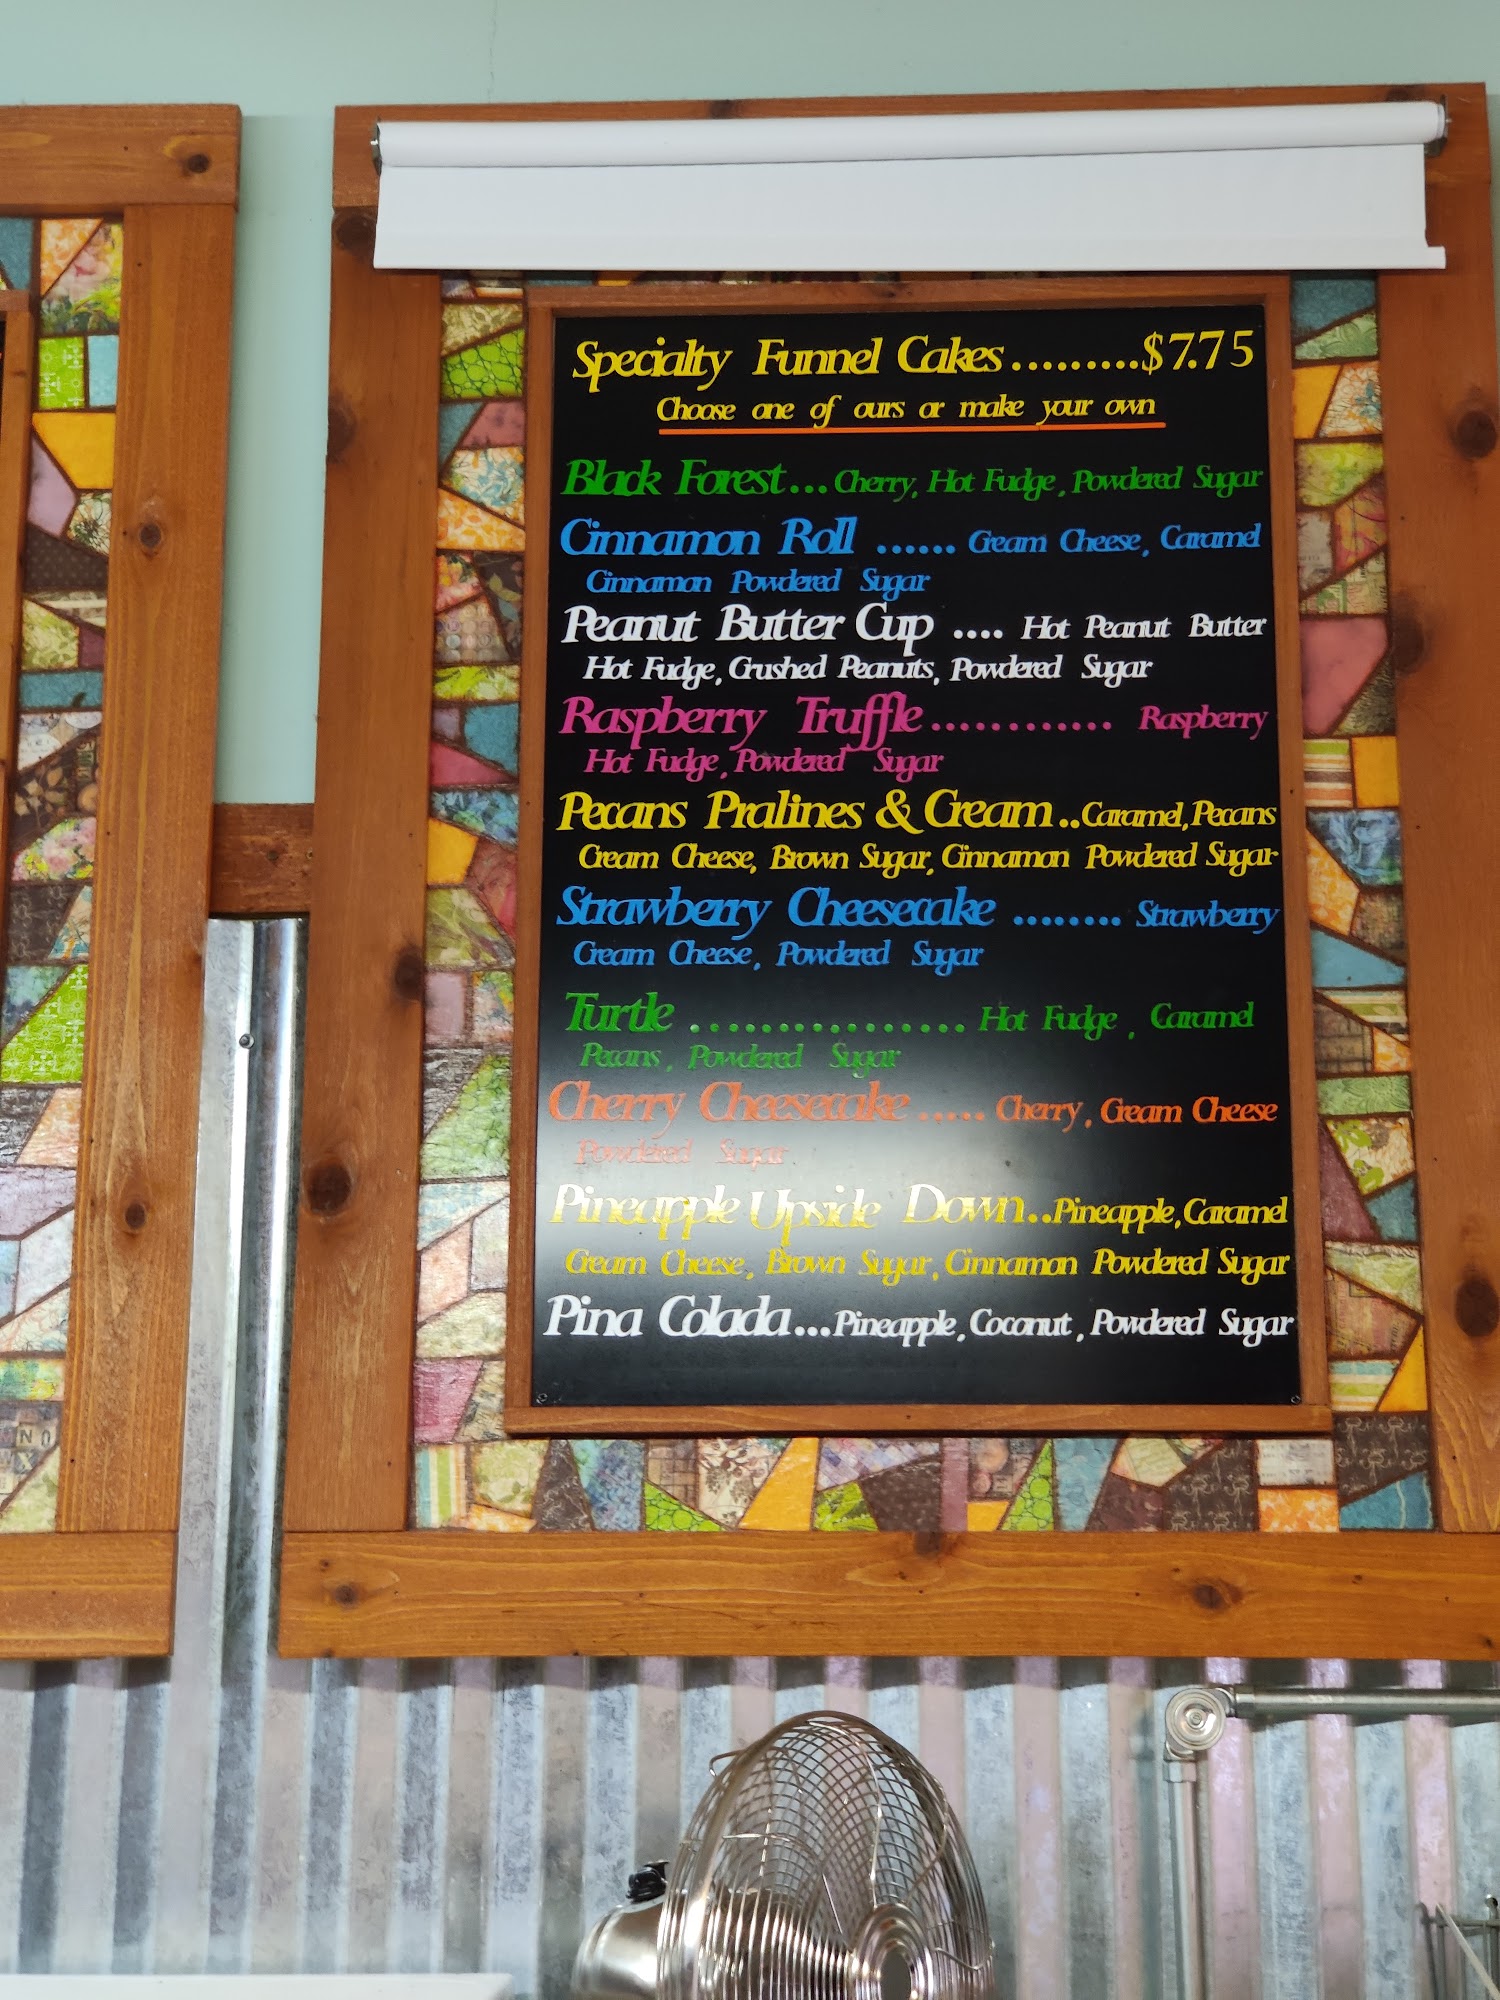 Specialty Funnel Cakes.........$7.75
Choose one of ours or make your own
Black Forest...Cherry, Hot Fudge, Powdered Sugar
Cinnamon Roll ...... Cream Cheese, Caramel
Cinnamon Powdered Sugar
Peanut Butter Cup .... Hot Peanut Butter
Hot Fudge, Crushed Peanuts, Powdered Sugar
Raspberry Truffle............ Raspberry
Hot Fudge, Powdered Sugar
Pecans Pralines & Cream..Caramel, Pecans
Cream Cheese, Brown Sugar, Cinnamon Powdered Sugar
Strawberry Cheesecake ........ Strawberry
Cream Cheese, Powdered Sugar
Turtle ................ Hot Fudge, Caramel
Pecans, Powdered Sugar
Cherry Cheesecake ..... Cherry, Cream Cheese
Powdered Sugar
Pineapple Upside Down..Pineapple, Caramel
Cream Cheese, Brown Sugar, Cinnamon Powdered Sugar
Pina Colada...Pineapple, Coconut, Powdered Sugar